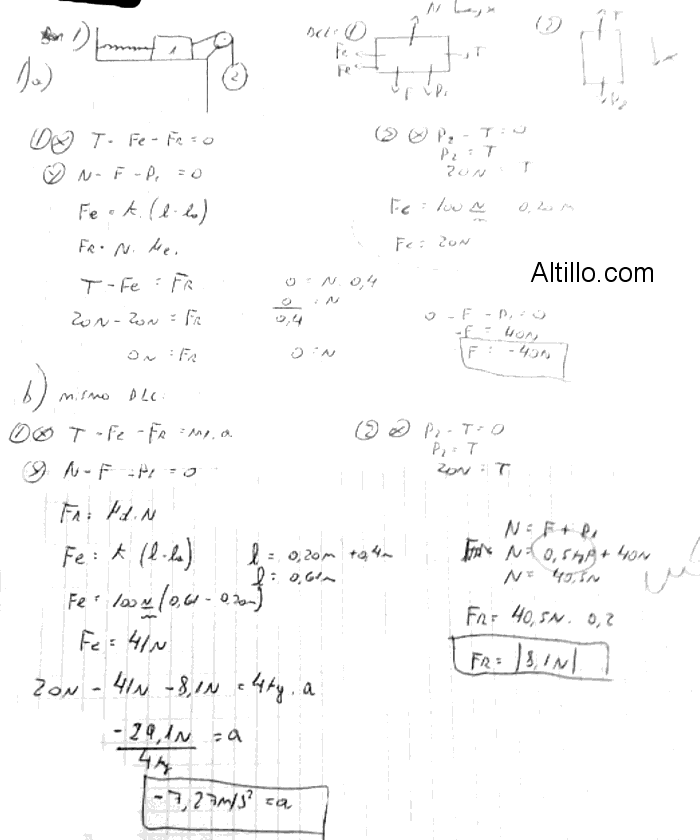 1)
1
2
1)a)
DCL: ①
N
Fe
Fe
T
F
P₁
(2)
T
P₂
① ⓧ T - Fe - FR = 0
(2) ⓧ P₂ - T = 0
P₂ = T
20N = T
ⓨ N - F - P₁ = 0
Fe = k. (l - lo)
Fe = 100 N/m 0,20m
FR = N. μe.
Fe = 20N
Altillo.com
T - Fe = FR
0 = N. 0,4
20N - 20N = FR
0/0,4 = N
0 - F - P₁ = 0
-F = 40N
0N = FR
0 = N
F = -40N
b) mismo DLC.
① ⓧ T - Fe - FR = m₁. a
(2) ⓧ P₂ - T = 0
P₂ = T
20N = T
ⓨ N - F - P₁ = 0
FR = μd. N
N = F + P₁
Fe = k (l - lo)
l = 0,20m + 0,4m
N = 0,5kgf + 40N
l = 0,61m
N = 40,5N
Fe = 100 N/m (0,61 - 0,20m)
Fe = 41N
FR = 40,5N. 0,2
FR = |8,1N|
20N - 41N - 8,1N = 4kg. a
-29,1N/4kg = a
-7,27m/s² = a